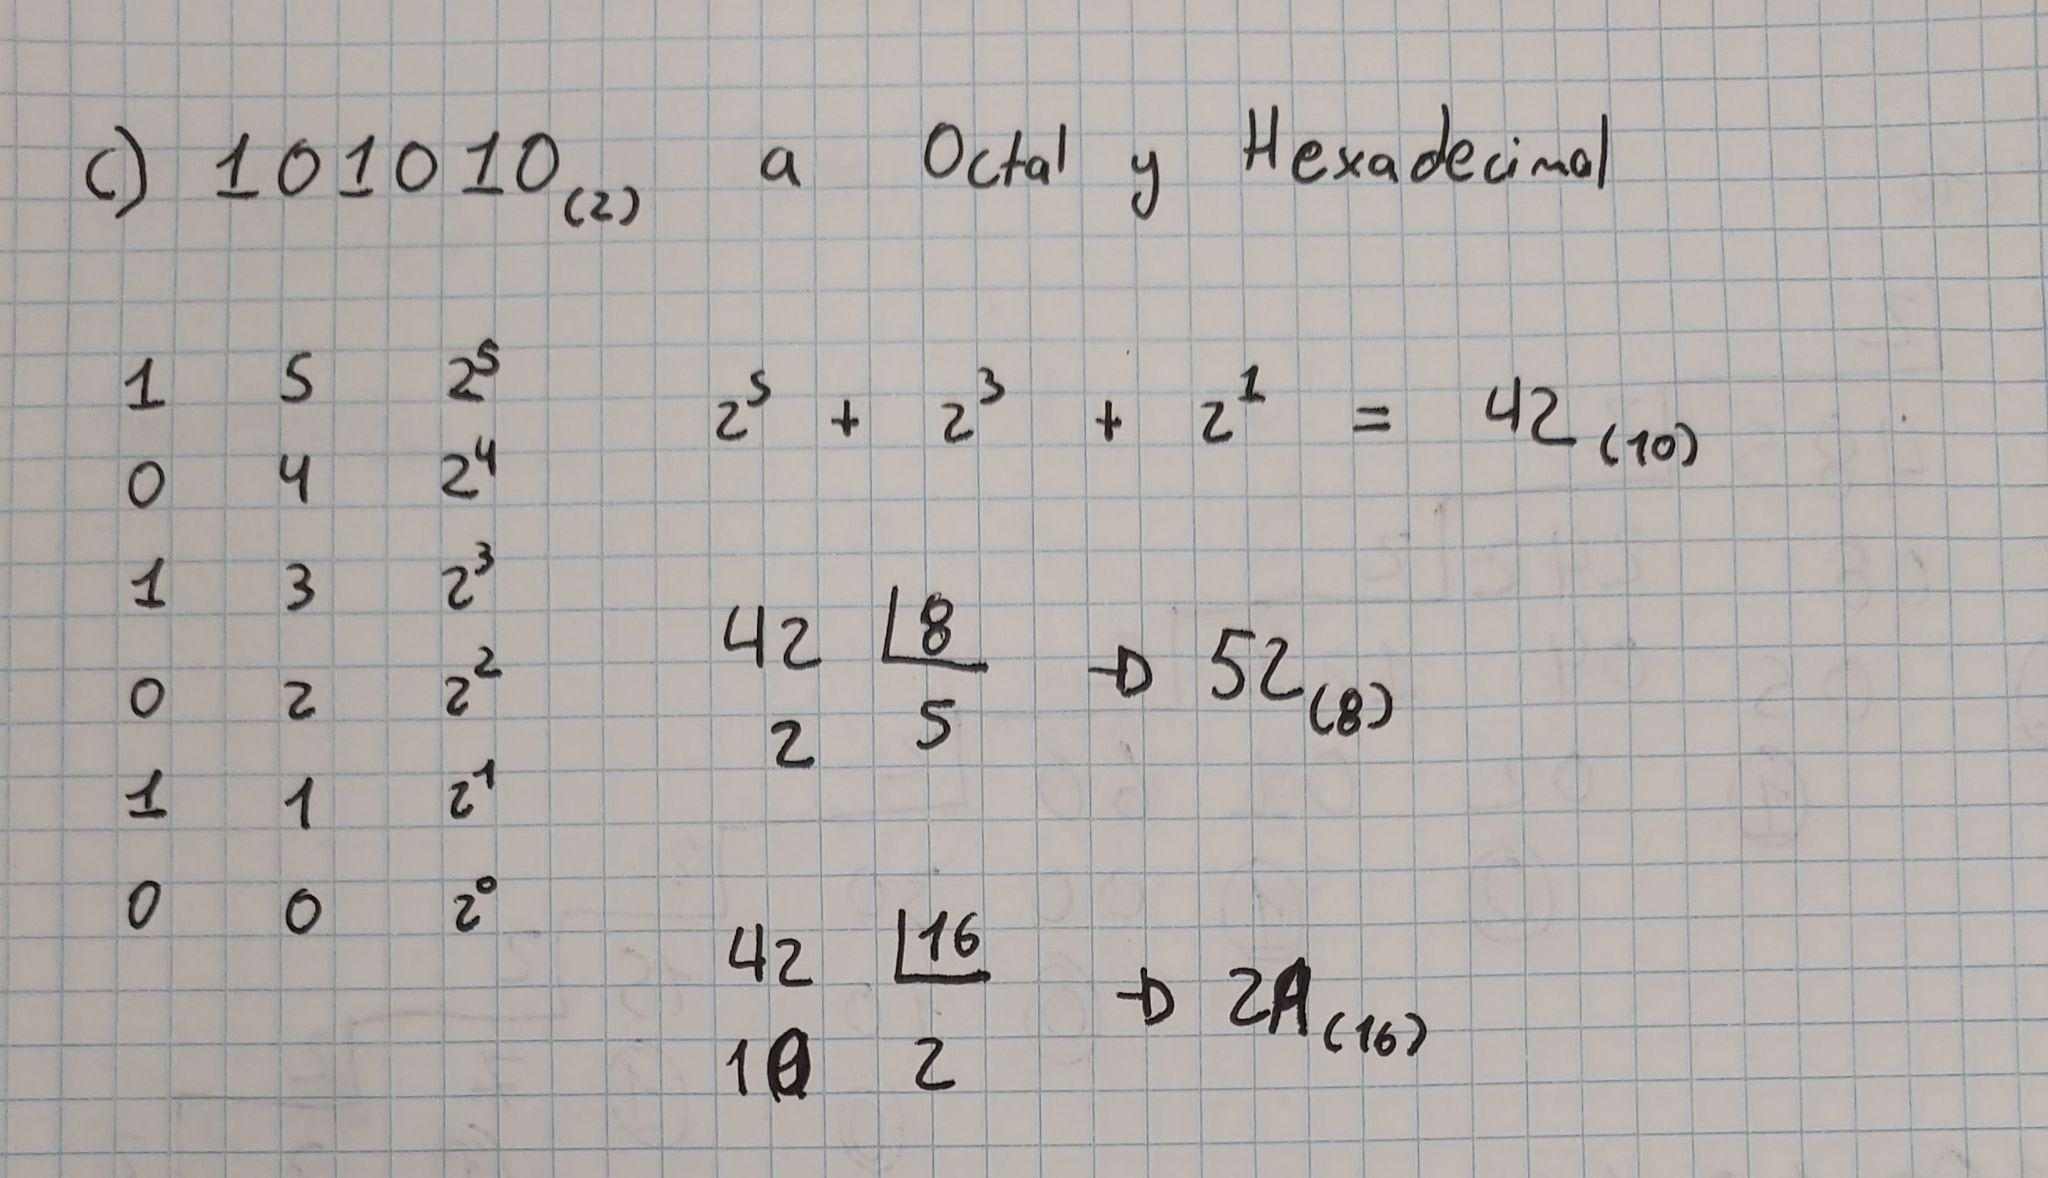 c) 101010(2) a Octal y Hexadecimal
1 5 2⁵
0 4 2⁴
1 3 2³
0 2 2²
1 1 2¹
0 0 2⁰
2⁵ + 2³ + 2¹ = 42(10)
42 |8 → 52(8)
2 5
42 |16 → 2A(16)
10 2